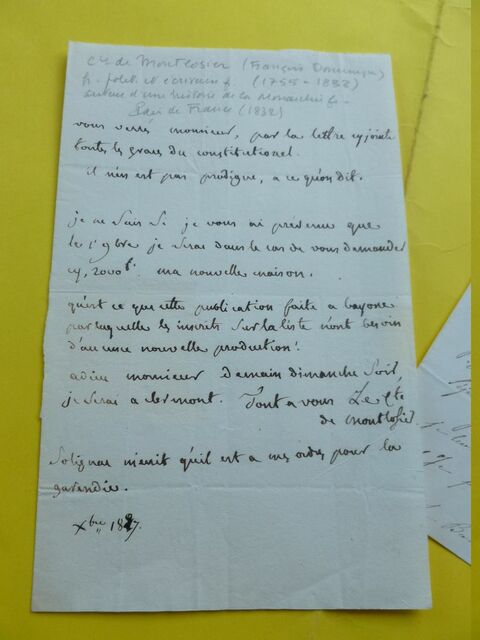 Cte de Montlosier (François Dominique)
h. polit. et écrivain f. (1755-1838)
auteur d'une histoire de la Monarchie f.
Pair de France (1832)
vous verrés monsieur, par la lettre cy jointe
toutes les graces du constitutionel.
il n'en est pas prodigue, a ce qu'on dit.
je ne sais si je vous ai prévenu que
le 1er 9bre je serai dans le cas de vous demander
cy, 2000f. ma nouvelle maison.
qu'est ce que cette publication faite a bayone
par laquelle les inscrits sur la liste n'ont besoin
d'aucune nouvelle production!
adieu monsieur Demain dimanche soir
je serai a clermont. Tout a vous Le cte
de montlosier
Solignac m'ecrit qu'il est a mes ordres pour la
garendie.
Xbre 1827.